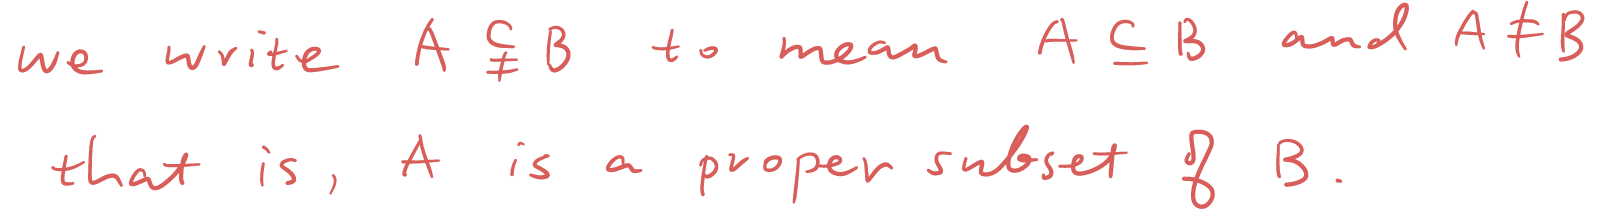 we write A ⊊ B to mean A ⊆ B and A ≠ B
that is, A is a proper subset of B.